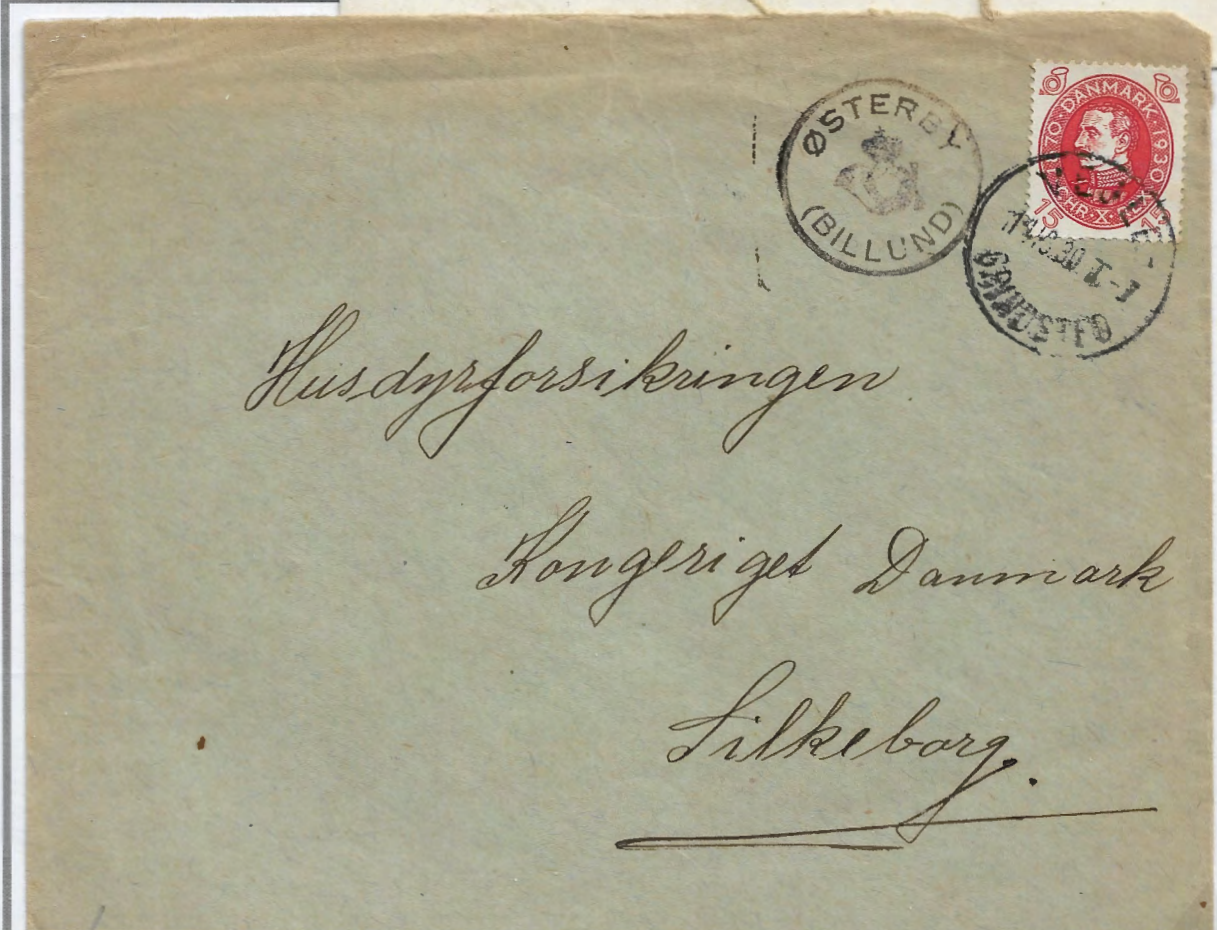 ØSTERBY
(BILLUND)
1870 · DANMARK · 1930
15 CHR · X · 15
GRINDSTED
Husdyrforsikringen
Kongeriget Danmark
Silkeborg.